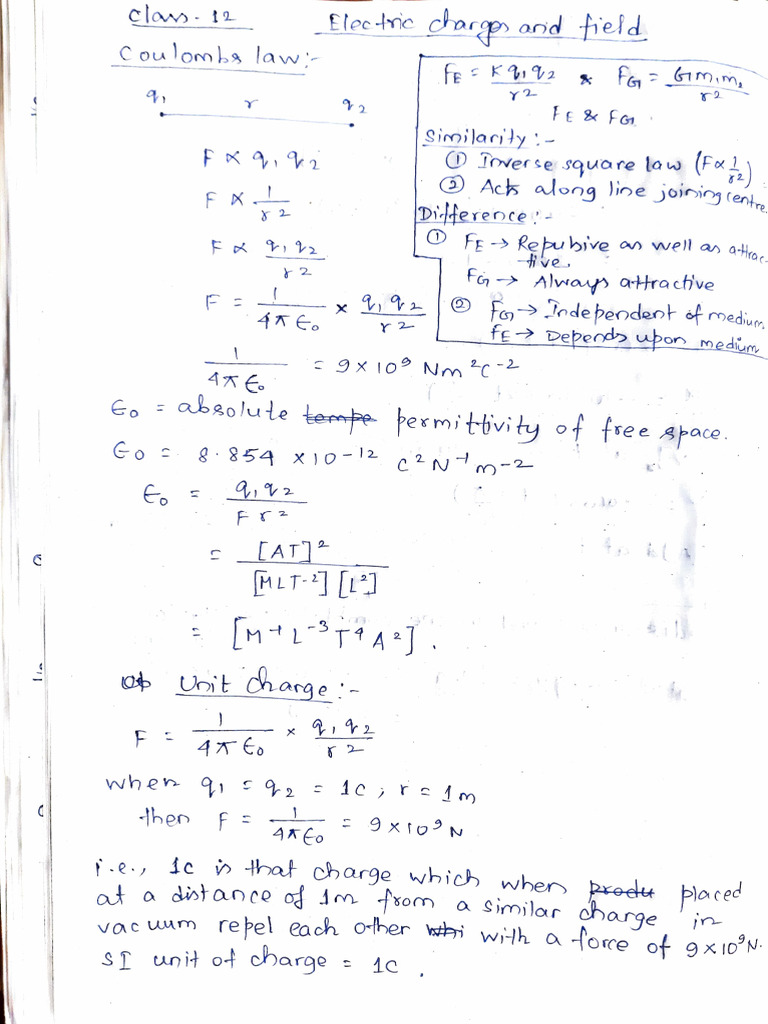 Class-12 Electric charges and field
Coulombs law:-
q1 r q2
F ∝ q1 q2
F ∝ 1/r2
F ∝ q1q2/r2
F = 1/4πϵ0 × q1q2/r2
1/4πϵ0 = 9×10^9 Nm^2C^-2
FE = Kq1q2/r2 & FG = Gm1m2/r2
FE & FG.
Similarity:-
① Inverse square law (F∝1/r2)
② Acts along line joining centre.
Difference:-
① FE → Repulsive as well as attrac-
tive.
FG → Always attractive
② FG → Independent of medium.
FE → Depends upon medium
ϵ0 = absolute permittivity of free space.
ϵ0 = 8.854 ×10^-12 C^2N^-1m^-2
ϵ0 = q1q2/Fr^2
= [AT]^2/[MLT^-2][L^2]
= [M^-1L^-3T^4A^2].
Unit Charge:-
F = 1/4πϵ0 × q1q2/r2
when q1 = q2 = 1C, r = 1m
then F = 1/4πϵ0 = 9×10^9N
i.e., 1C is that charge which when placed
at a distance of 1m from a similar charge in
vacuum repel each other with a force of 9×10^9N.
SI unit of charge = 1C.